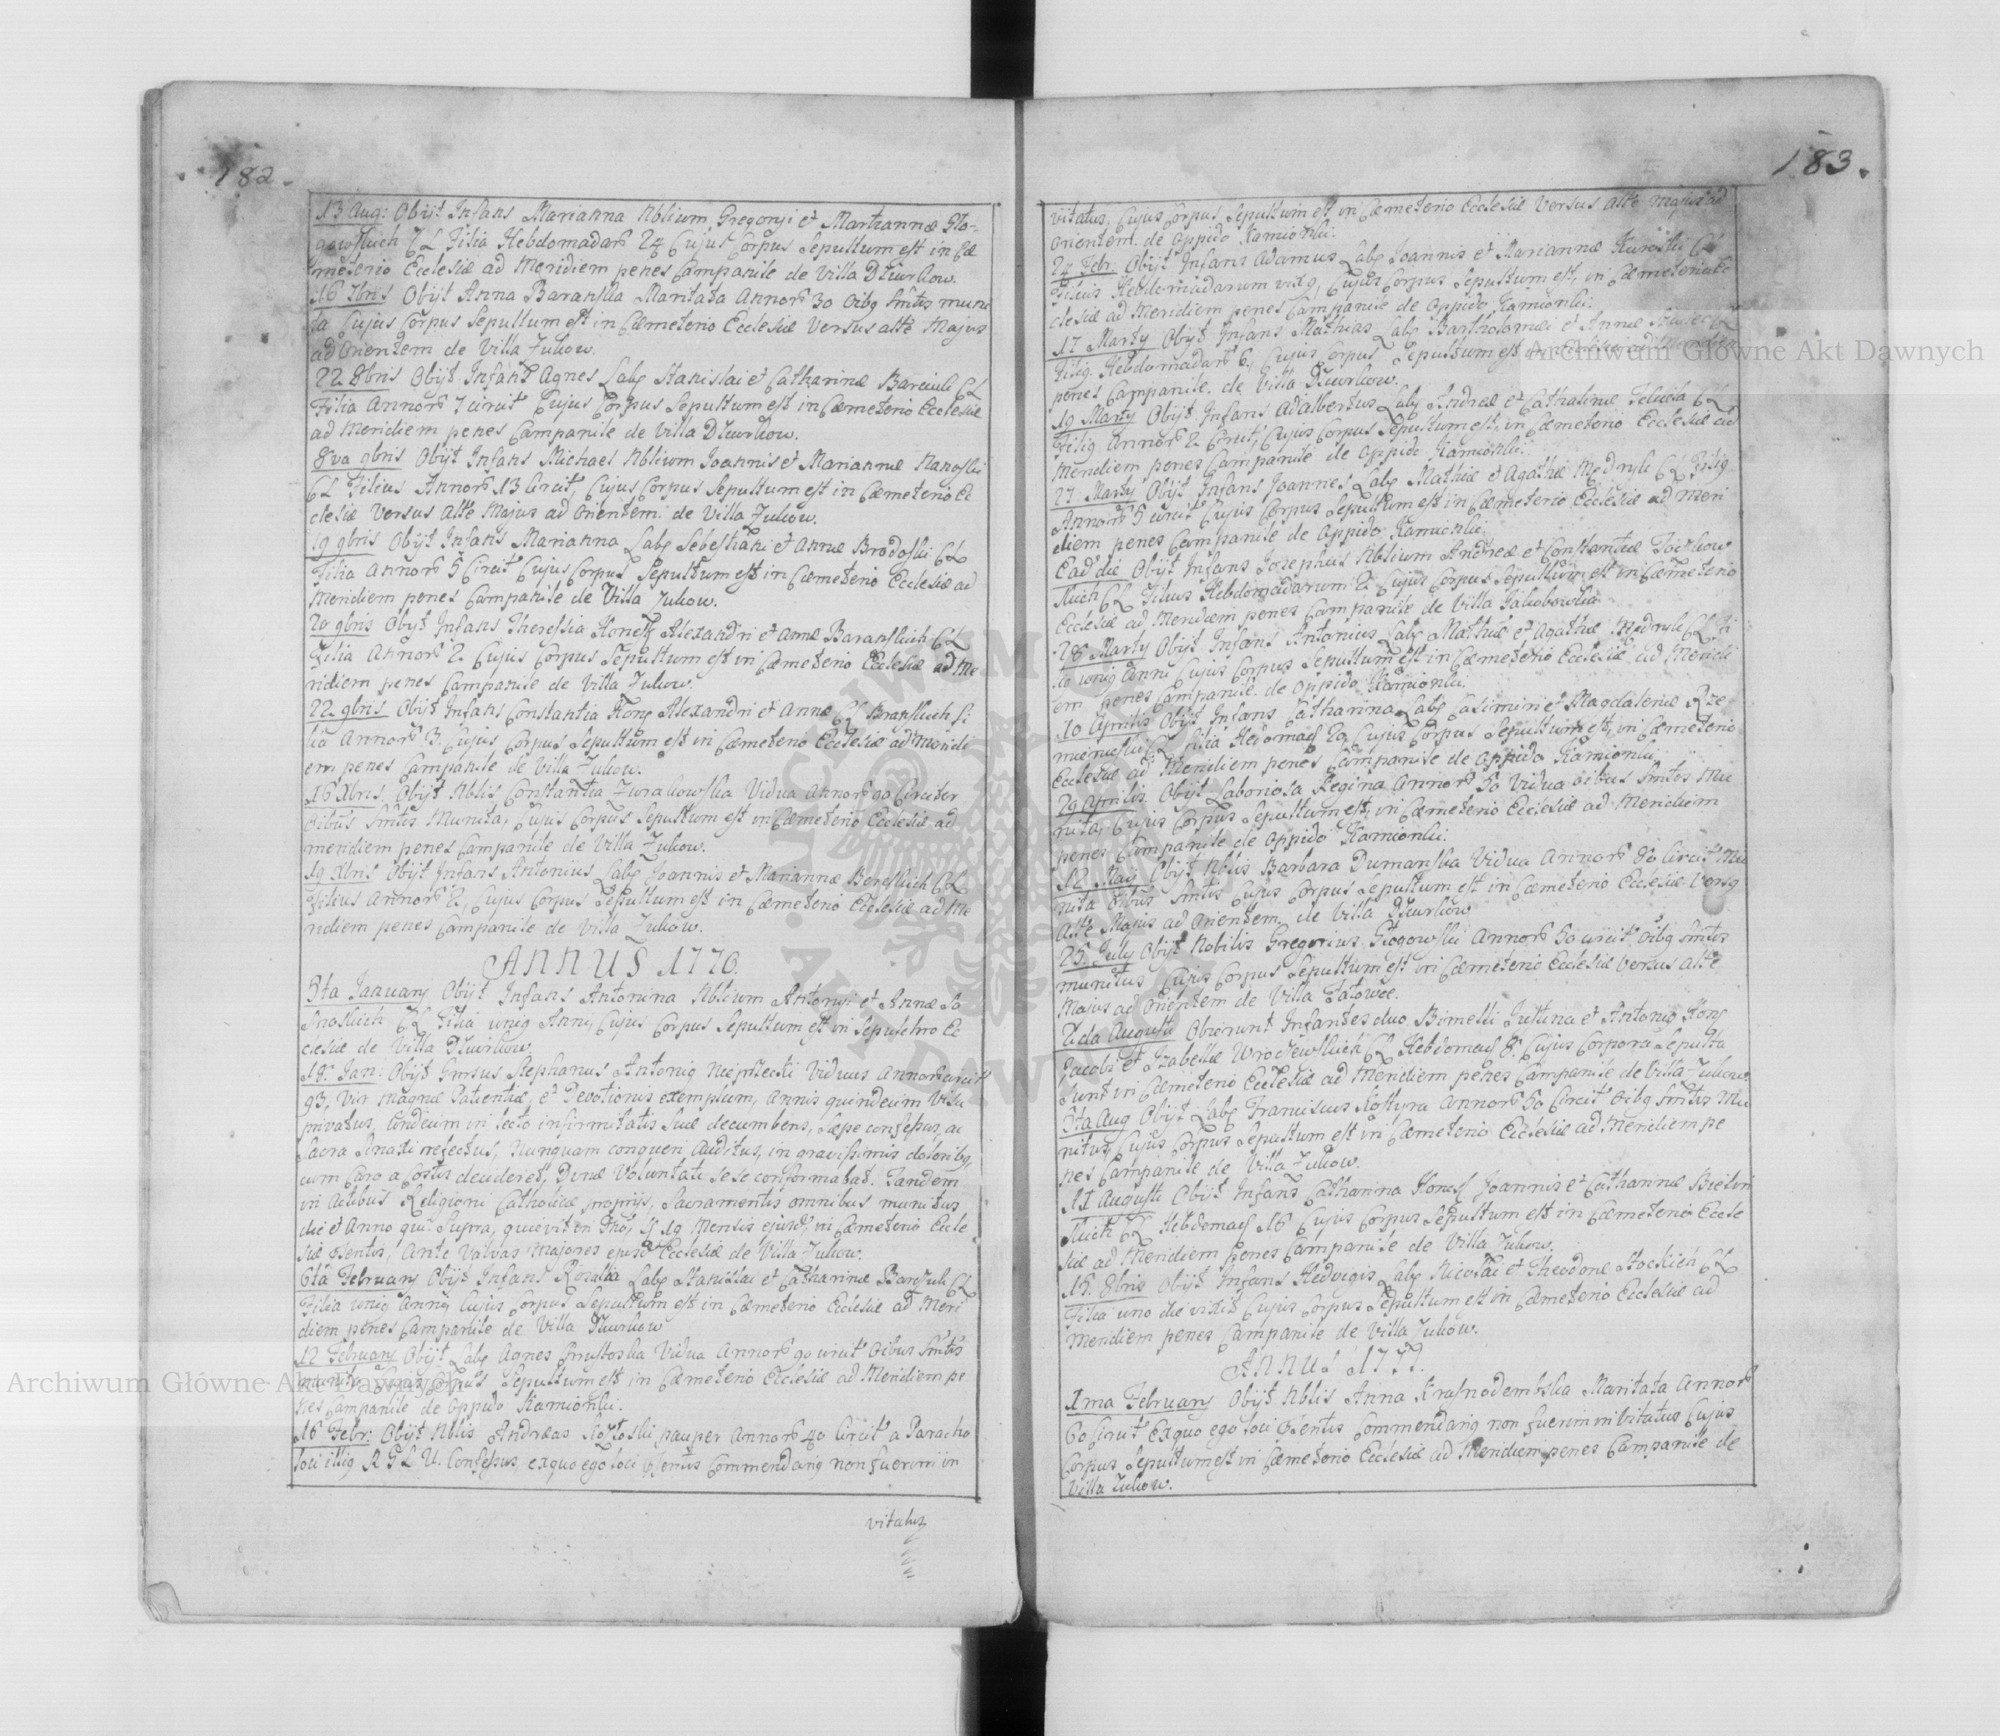 182.
13 Aug: Obijt Infans Marianna Nblium Gregorji et Marthannæ Glo-
gowskich CL Filia Hebdomadar 24 Cujus Corpus Sepultum est in Cæ
meterio Ecclesiæ ad Meridiem penes Campanile de Villa Dzurkow.
16 7bris Obijt Anna Baranska Maritata Annor 30 Oibq Smtis muni
ta Cujus Corpus Sepultum est in Cæmeterio Ecclesiæ Versus alte Majus
ad Orientem de Villa Zukow.
22 8bris Obijt Infans Agnes Lab Stanislai et Catharinæ Barciuk CL
Filia Annor 7 circit Cujus Corpus Sepultum est in Cæmeterio Ecclesiæ
ad Meridiem penes Campanile de Villa Dzurkow.
8va 9bris Obijt Infans Michael Nblium Joannis et Mariannæ Nanoski
CL Filius Annor 13 Circit, Cujus Corpus Sepultum est in Cæmeterio Ec
clesiæ Versus Alte Majus ad Orientem de Villa Zukow.
19 9bris Obijt Infans Marianna Lab Sebestiani et Annæ Brodoski CL
Filia Annor 5 Circit Cujus Corpus Sepultum est in Cæmeterio Ecclesiæ ad
Meridiem penes Campanile de Villa Zukow.
20 9bris Obijt Infans Theressia Honest Alexandri et Annæ Baranskich CL
Filia Annor 2 Cujus Corpus Sepultum est in Cæmeterio Ecclesiæ ad Me
ridiem penes Campanile de Villa Zukow.
22 9bris Obijt Infans Constantia Hones Alexandri et Annæ CL Branskich fi
lia Annor 3 Cujus Corpus Sepultum est in Cæmeterio Ecclesiæ ad Meridi
em penes Campanile de Villa Zukow.
16 Xbris Obijt Nblis Constantia Zurakowska Vidua Annor 90 Circiter
Oibus Smtis Munita, Cujus Corpus Sepultum est in Cæmeterio Ecclesiæ ad
meridiem penes Campanile de Villa Zukow.
19 Xbris Obijt Infans Antonius Lab Joannis et Mariannæ Bereskich CL
Filius Annor 2, Cujus Corpus Sepultum est in Cæmeterio Ecclesiæ ad Me
ridiem penes Campanile de Villa Zukow.
ANNUS 1770.
5ta January Obijt Infans Antonina Nblium Antonji et Annæ So
snoskich CL Filia uniq Anni, Cujus Corpus Sepultum est in Sepulchro Ec
clesiæ de Villa Dzurkow
18. Jan: Obijt Gnsus Stephanus Antoniq Viduus Annor circit
93, Vir Magnæ Patientiæ, et Devotionis exemplum, Annis quindecim Visu
privatus, tandem in lecto infirmitatis suæ decumbens, sæpe confessus, ac
Sacra Sinaxi refectus, Nunquam conqueri Auditus, in gravissimis doloribq,
cum Caro a Costis decideret, Divinæ Voluntati sese conformabat. Tandem
in Actibus Religioni Catholicæ proprijs, Sacramentis omnibus munitus
die et Anno qui Supra, quievit in Dno, 19 Mensis ejusd, in Cæmeterio Eccle
siæ Psentis, Ante Valvas Majores ejusd Ecclesiæ de Villa Zukow.
6ta February Obijt Infans Rosalia Lab Stanislai et Catharinæ Barczuk CL
Filia uniq Anniq Cujus Corpus Sepultum est in Cæmeterio Ecclesiæ ad Meri
diem penes Campanile de Villa Dzurkow
12 February Obijt Lab Agnes Vidua Annor 90 circit Oibus Smtis
munita Cujus Corpus Sepultum est in Cæmeterio Ecclesiæ ad Meridiem pe
nes Campanile de Oppido Kamionki.
16 Febr: Obijt Nblis Andreas pauper Annor 40 Circit a Paracho
loci illiq R G L U. Confessus ex quo ego loci Psentis Commendariq non fuerim in
vitatus
183.
vitatus, Cujus Corpus Sepultum est in Cæmeterio Ecclesiæ Versus Alte Majus ad
Orientem de Oppido Kamionki.
24 Febr: Obijt Infans Adamus Lab Joannis et Mariannæ Kuroski CL
Filius Hebdomadarum Cujus Corpus Sepultum est, in Cæmeterio Ec
clesiæ ad Meridiem penes Campanile de Oppido Kamionki.
17 Marty Obijt Infans Mathias Lab Bartholomæi et Annæ CL
Filiq Hebdomadar 6, Cujus Corpus Sepultum est in
penes Campanile de Villa Dzurkow.
19 Marty Obijt Infans Adalbertus Lab Andreæ et Catharinæ CL
Filiq Annor 2 Circit, Cujus Corpus Sepultum est, in Cæmeterio Ecclesiæ ad
Meridiem penes Campanile de Oppido Kamionki.
27 Marty Obijt Infans Joannes Lab Mathiæ et Agathæ Mędryk CL Filiq
Annor 5 circit Cujus Corpus Sepultum est in Cæmeterio Ecclesiæ ad Meri
diem penes Campanile de Oppido Kamionki.
Ead die Obijt Infans Josephus Nblium Andreæ et Constantiæ
skich CL Filius Hebdomadarum 2 Cujus Corpus Sepultum est in Cæmeterio
Ecclesiæ ad Meridiem penes Campanile de Villa Jakobowka
28 Marty Obijt Infans Antonius Lab Mathiæ et Agathæ Mędryk CL Fi
uniq Anni Cujus Corpus Sepultum est in Cæmeterio Ecclesiæ ad Meridi
em penes Campanile de Oppido Kamionki.
10 Aprilis Obijt Infans Catharina Lab Casimiri et Magdalenæ
CL Filia Hebomad 20 Cujus Corpus Sepultum est, in Cæmeterio
Ecclesiæ ad Meridiem penes Campanile de Oppido Kamionki
29 Aprilis Obijt Laboriosa Regina Annor 50 Vidua Oibus Smtis Mu
nita, Cujus Corpus Sepultum est, in Cæmeterio Ecclesiæ ad Meridiem
penes Campanile de Oppido Kamionki.
12 Maij Obijt Nblis Barbara Dumanska Vidua Annor 80 Circit Mu
nita Oibus Smtis Cujus Corpus Sepultum est in Cæmeterio Ecclesiæ Versq
Alte Majus ad Orientem de Villa Dzurkow
25 July Obijt Nobilis Gregorius Głogowski Annor 50 circit Oibq Smtis
munitus Cujus Corpus Sepultum est in Cæmeterio Ecclesiæ Versus Alte
Majus ad Orientem de Villa
2da Augusti Obierunt Infantes duo Bimelli Justina et Antoniq Hons
Jacobi et Izabellæ CL Hebdomad 8 Cujus Corpora Sepulta
Sunt in Cæmeterio Ecclesiæ ad Meridiem penes Campanile de Villa Zukow.
5ta Aug Obijt Lab Franciscus Kostyra Annor 50 Circit Oibq Smtis Mu
nitus, Cujus Corpus Sepultum est in Cæmeterio Ecclesiæ ad Meridiem pe
nes Campanile de Villa Zukow.
11 Augusti Obijt Infans Catharina Honest Joannis et Catharinæ Bielin
skich CL Hebdomad 16 Cujus Corpus Sepultum est in Cæmeterio Eccle
siæ ad Meridiem penes Campanile de Villa Zukow.
15. 8bris Obijt Infans Hedvigis Lab Nicolai et Theodoræ CL
Filia uno die vixit Cujus Corpus Sepultum est in Cæmeterio Ecclesiæ ad
Meridiem penes Campanile de Villa Zukow.
ANNUS 1771.
1ma February Obijt Nblis Anna Krasnodembska Maritata Annor
60 Circit Ex quo ego loci Psentis Commendariq non fuerim invitatus Cujus
Corpus Sepultum est in Cæmeterio Ecclesiæ ad Meridiem penes Campanile de
Villa Zukow.
Archiwum Główne Akt Dawnych
Archiwum Główne Akt Dawnych
ARCHIWUM GŁÓWNE AKT DAWNYCH